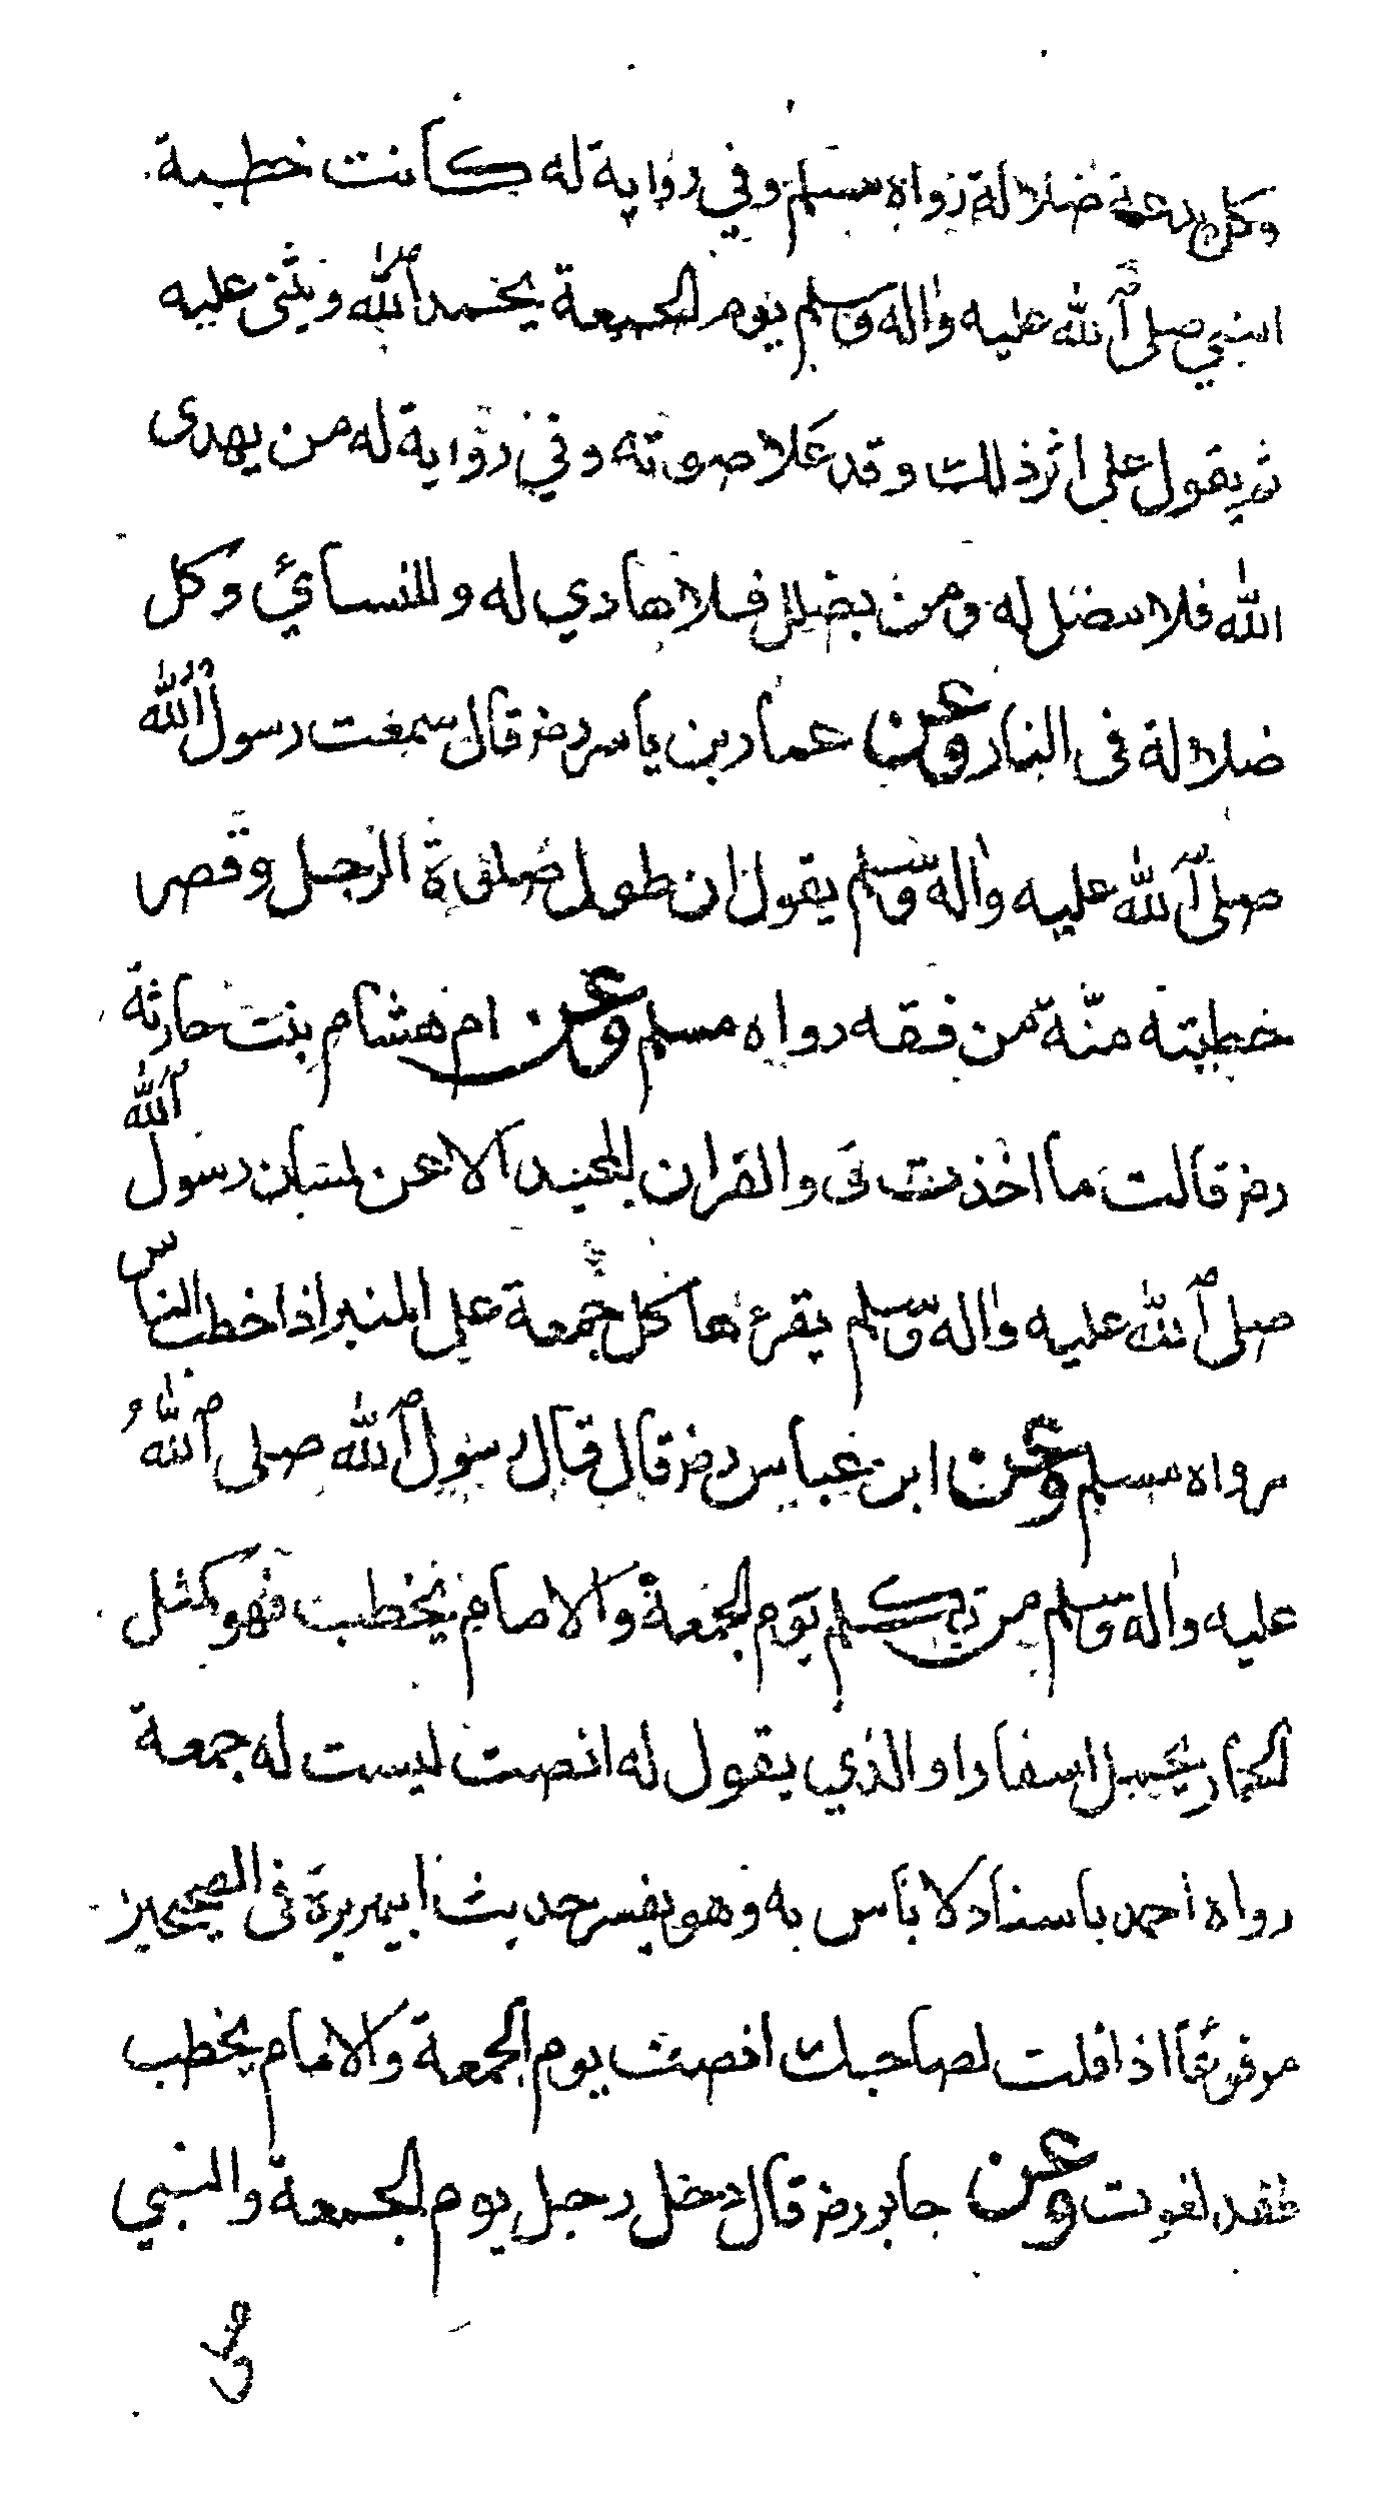 وكل بدعة ضلالة رواه مسلم وفي رواية له كانت خطبة
النبي صلى الله عليه واله وسلم يوم الجمعة يحمد الله ويثنى عليه
ثم يقول على اثر ذلك وقد علا صوته وفي رواية له من يهدى
الله فلا مضل له ومن يضلل فلا هادي له وللنسائي وكل
ضلالة فى النار وعن عمار بن ياسر رضـ قال سمعت رسول الله
صلى الله عليه واله وسلم يقول ان طول صلوة الرجل وقصر
خطبته منّة من فقه رواه مسلم وعن ام هشام بنت حارثة
رضـ قالت ما اخذت ق والقران المجيد الا عن لسان رسول الله
صلى الله عليه واله وسلم يقرءها كل جمعة على المنبر اذا خطب الناس
رواه مسلم وعن ابن عباس رضـ قال قال رسول الله صلى الله
عليه واله وسلم من تكلم يوم الجمعة والامام يخطب فهو كمثل
الحمار يحمل اسفارا والذي يقول له انصت ليست له جمعة
رواه احمد باسناد لا باس به وهو يفسر حديث ابيهريرة فى الصحيحين
مرفوعًا اذا قلت لصاحبك انصت يوم الجمعة والامام يخطب
فقد لغوت وعن جابر رضـ قال دخل رجل يوم الجمعة والنبي